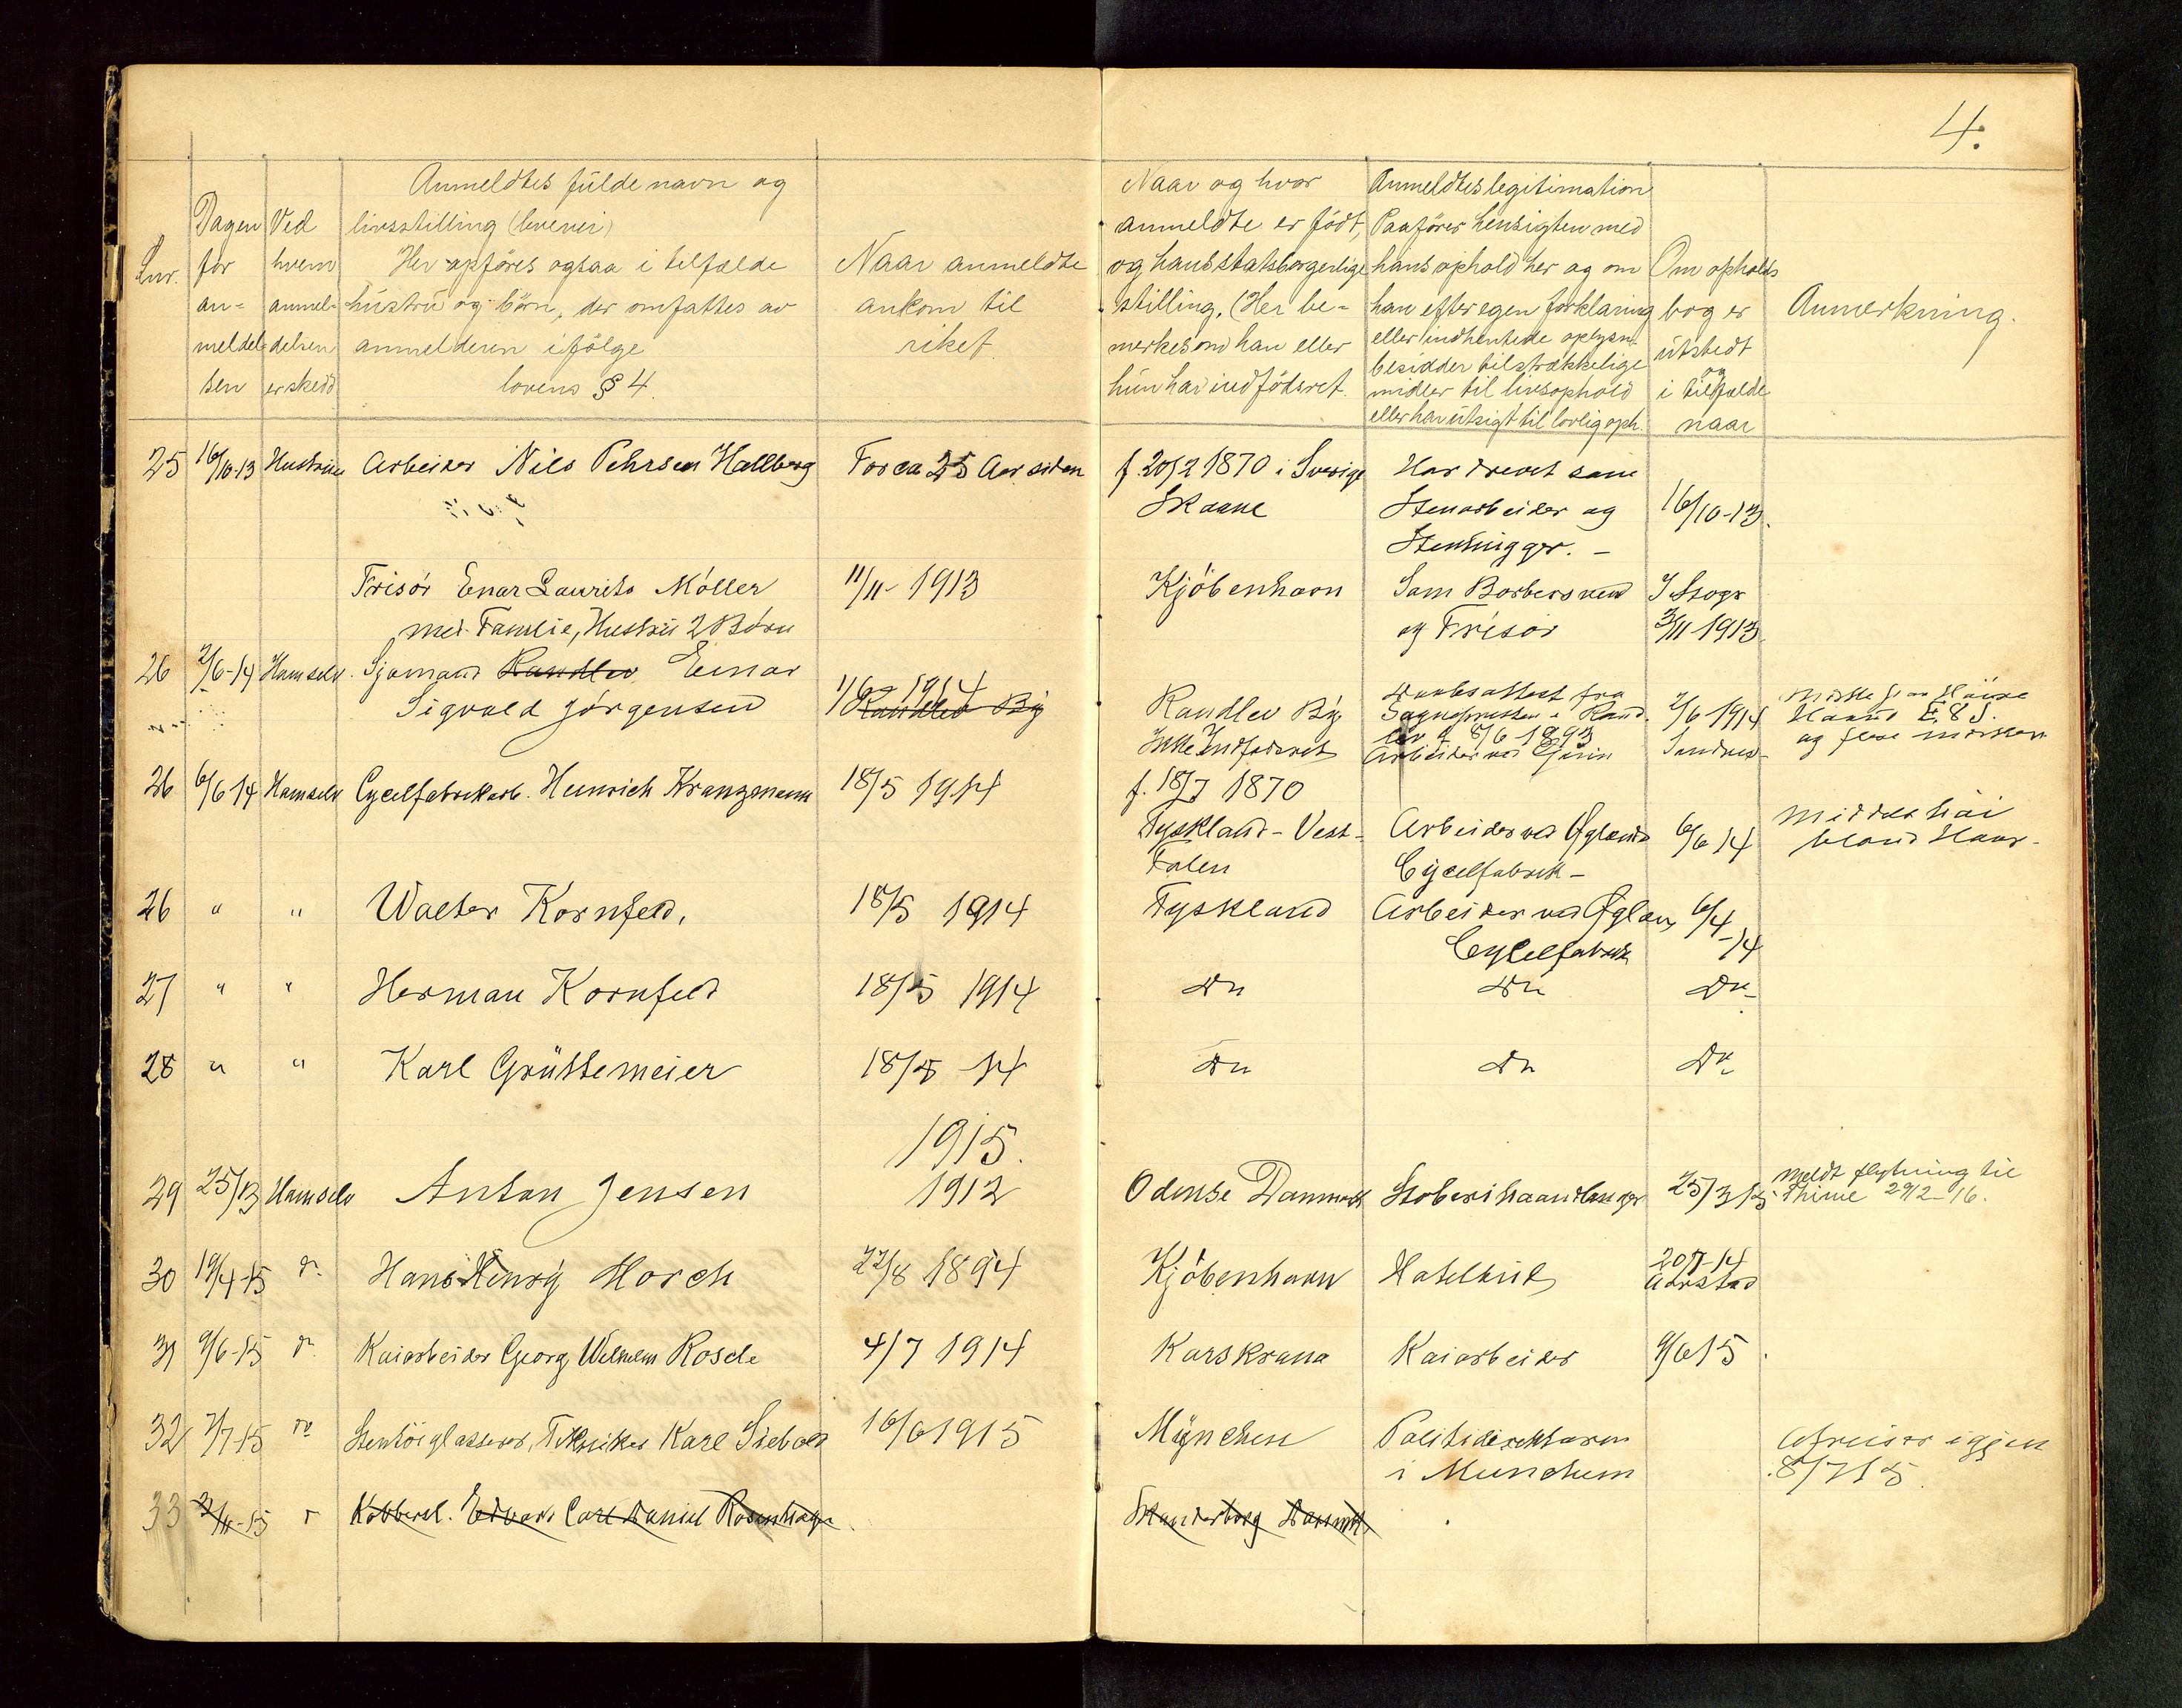 4.
Lnr.
Dagen
for
an=
meldel=
sen
Ved
hvem
anmel-
delsen
er skedd
Anmeldtes fülde navn og
livsstilling (levevei)
Her opföres ogsaa i tilfælde
hüstrü og börn, der omfattes av
anmelderen ifölge
lovens § 4.
Naar anmeldte
ankom til
riket.
Naar og hvor
anmeldte er födt,
og hans statsborgerlige
stilling. (Her be=
merkes om han eller
hün har indfödsret.
Anmeldtes legitimation
Paaföres hensigten med
hans ophold her og om
han efter egen forklaring
eller indhentede oplysn.
besidder tilstrækkelige
midler til livsophold
eller har ütsigt til lovlig oph.
Om opholds
bog er
ütstedt
og
i tilfælde
naar
Anmerkning.
25 16/10-13 Hustrüe Arbeider Nils Pehrsen Hallberg For ca 25 Aar siden f. 20/2 1870 i Sverige Har drevet som
Skaane Stenarbeider og 16/10-13.
Stenhügger. –
Frisör Enar Laurits Möller 11/11- 1913 Kjöbenhavn Som Barbersvend I Stogr
med Familie, Hustrü 2 Börn og Frisör 3/11 1913.
26 2/6-14 Ham selv. Sjømand Randlev Einar
Sigvald Jørgensen 1/6 - 1914 Randlev By
Randlev By 2/6 1914
Daabsattest fra
Sognepresten i Rand-
lev f. 8/6 1893
Ikke Indfødsret Arbeider ved Sandnes
26 6/6 14 Ham selv Cycelfabrikarb. Heinrich Kranzmann 18/5 1914 f. 18/7 1870
Tyskland - Vest- Arbeider ved Øglænd 6/6 14 Middels häi
Falen Cycelfabrik – blond Haar.
26 " " Walter Kornfeld, 18/5 1914 Tyskland Arbeider ved Øglæn 6/4
Cycelfabrik -14
27 " " Herman Kornfeld 18/5 1914 Do Do Do
28 " " Karl Grüttemeier 18/5 -14 Do Do Do
1915.
29 25/3 Ham selv Anton Jensen 1912 Odense Danmark Støberihaandlanger 25/3 15 Meldt flytning til
Thime 29/2-16.
30 19/4-15 do Hans Henry Horch 22/8 1894 Kjöbenhavn 20/7-14
31 9/6-15 do Kaiarbeider Georg Wilhelm Rosde 4/7 1914 Karskrana Kaiarbeider 9/6 15
32 7/7-15 do Stentöiglasserer, Tekniker Karl Siebold 16/6 1915 Mÿnchen Politidirektøren Afreiser igjen
i Munchum 8/7 15
33 2/11-15 d Kobbersl. Edvard Carl Daniel Rosenhagn. Skanderborg Danmk